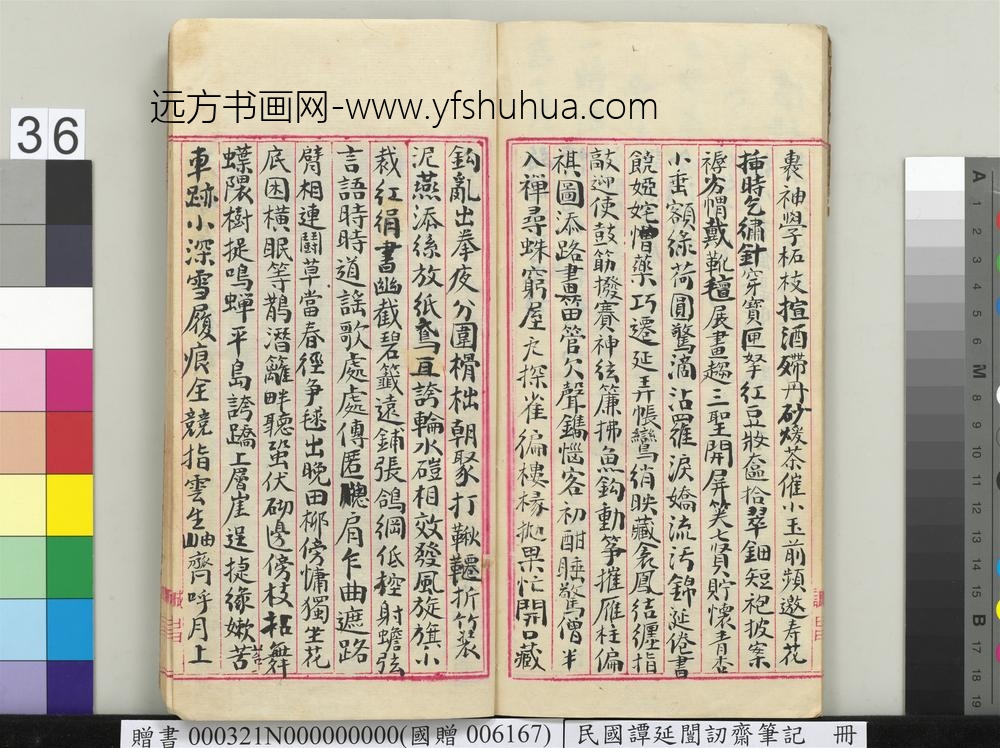 远方书画网-www.yfshuhua.com
裹神學柘枝揎酒殢丹砂煖茶催小玉前頻邀壽花
插時乞繡針穿寶匣拏紅豆妝奩拾翠鈿短袍披案
褥劣帽戴靴氈展畫趨三聖開屏笑七賢貯懷青杏
小垂額綠荷圓驚滴沾羅淚嬌流污錦涎倦書
饒婭姹憎藥巧遷延弄帳鸞綃映藏衾鳳結纏指
敲迎使鼓筯撥賽神絃簾拂魚鈎動箏摧雁柱偏
棋圖添路畫笛管欠聲鐫惱客初酣睡驚僧半
入禪尋蛛窮屋尢探雀徧樓椽抛果忙開口藏
鈎亂出拳夜分圍榾柮朝聚打鞦韆折竹裝
泥燕添絲放紙鳶互誇輪水磑相效發風旋旗小
裁紅絹書幽截碧籤遠鋪張鴿綱低控射蟾弦
言語時時道謠歌處處傳匿牕肩乍曲遮路
臂相連鬭草當春徑爭毬出晚田柳傍慵獨坐花
底困橫眠等鵲潛籬畔聽蛩伏砌邊傍枝招舞
蝶隈樹捉鳴蟬平島誇蹻上層崖逞捷緣嫩苦
苔
車跡小深雪履痕全競指雲生岫齊呼月上
36
A 1 2 3 4 5 6 M 8 9 10 11 12 13 14 15 B 17 18 19
贈書 000321N000000000(國贈 006167)
民國譚延闓訒齋筆記 冊